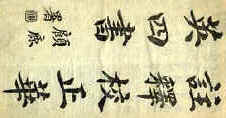 註釋校正華
英四書
顧廉
署